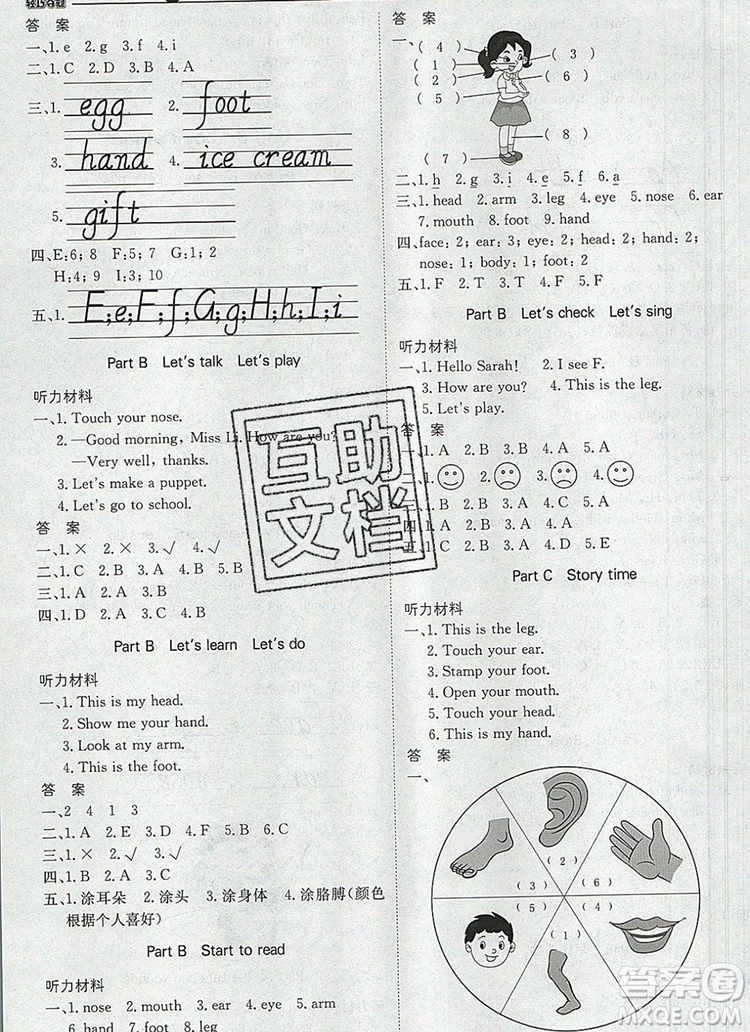 轻巧夺冠
答 案
一、1. e 2. g 3. f 4. i
二、1. C 2. D 3. B 4. A
三、1. egg 2. foot
3. hand 4. ice cream
5. gift
四、E:6; 8 F:5; 7 G:1; 2
H:4; 9 I:3; 10
五、1. E;eF;fG;gH;hI;i
Part B Let's talk Let's play
听力材料
一、1. Touch your nose.
2. —Good morning, Miss Li. How are you?
—Very well, thanks.
3. Let's make a puppet.
4. Let's go to school.
答 案
一、1. × 2. × 3. √ 4. √
二、1. B 2. A 3. B 4. B
三、1. C 2. A 3. B
四、1. D 2. A 3. C 4. B
Part B Let's learn Let's do
听力材料
一、1. This is my head.
2. Show me your hand.
3. Look at my arm.
4. This is the foot.
答 案
一、2 4 1 3
二、1. A 2. E 3. D 4. B 5. F 6. C
三、1. × 2. √ 3. √
四、1. B 2. A 3. A 4. C
五、1. 涂耳朵 2. 涂头 3. 涂身体 4. 涂胳膊(颜色
根据个人喜好)
Part B Start to read
听力材料
一、1. nose 2. mouth 3. eye 4. ear 5. arm
6. hand 7. foot 8. leg
答 案
一、
(4)
(1) (3)
(2) (6)
(5)
(8)
(7)
二、1. h 2. g 3. i 4. e 5. f 6. a
三、1. head 2. arm 3. leg 4. eye 5. nose 6. ear
7. mouth 8. foot 9. hand
四、face: 2; ear: 3; eye: 2; head: 2; hand: 2;
nose: 1; body: 1; foot: 2
五、1. F 2. T 3. F 4. T 5. F
Part B Let's check Let's sing
听力材料
一、1. Hello Sarah! 2. I see F.
3. How are you? 4. This is the leg.
5. Let's play.
答 案
一、1. A 2. B 3. B 4. A 5. B
二、1. 2. 3. 4.
三、1. B 2. B 3. A 4. A
四、1. A 2. B 3. A 4. A
五、1. C 2. B 3. A 4. D 5. E
Part C Story time
听力材料
一、1. This is the leg.
2. Touch your ear.
3. Stamp your foot.
4. Open your mouth.
5. Touch your head.
6. This is my hand.
答 案
一、
(2)
(3) (6)
(5) (4)
(1)
互助
文档
答案圈
MXQE.COM